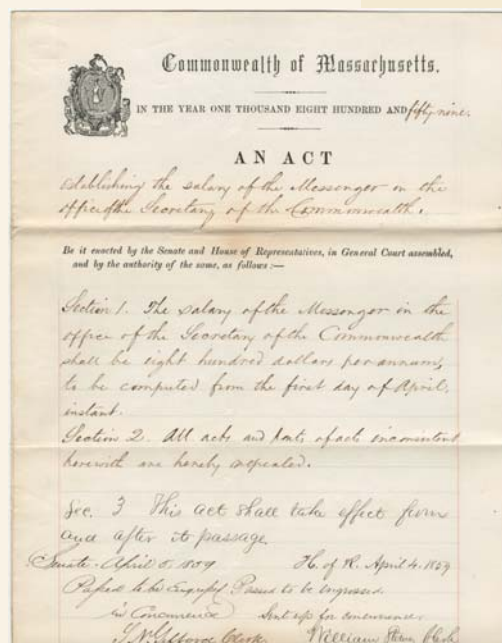 Commonwealth of Massachusetts.
IN THE YEAR ONE THOUSAND EIGHT HUNDRED AND fifty-nine.
AN ACT
Establishing the salary of the Messenger in the
office of the Secretary of the Commonwealth.
Be it enacted by the Senate and House of Representatives, in General Court assembled,
and by the authority of the same, as follows :—
Section 1. The salary of the Messenger in the
office of the Secretary of the Commonwealth
shall be eight hundred dollars per annum,
to be computed from the first day of April,
instant.
Section 2. All acts and parts of acts inconsistent
herewith are hereby repealed.
Sec. 3 This act shall take effect from
and after its passage.
Senate. April 5, 1859 H. of R. April 4. 1859
Passed to be Engrossed Passed to be engrossed.
in Concurrence Sent up for concurrence.
Clerk William Stowe Clerk